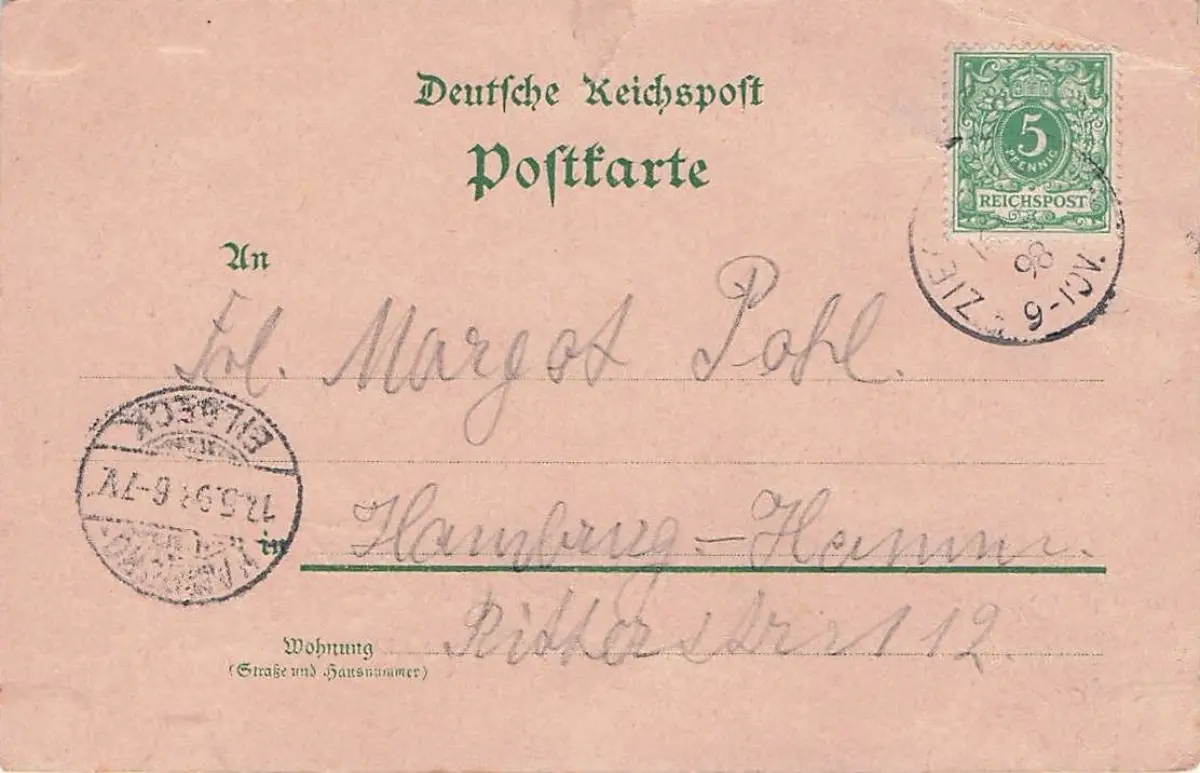 Deutsche Reichspost
Postkarte
5
PFENNIG
REICHSPOST
98
9-10V.
An
Frl. Margot Pohl.
EILBECK
12.5.98 6-7V.
in Hamburg-Hamm.
Ritterstr 112.
Wohnung
(Straße und Hausnummer)